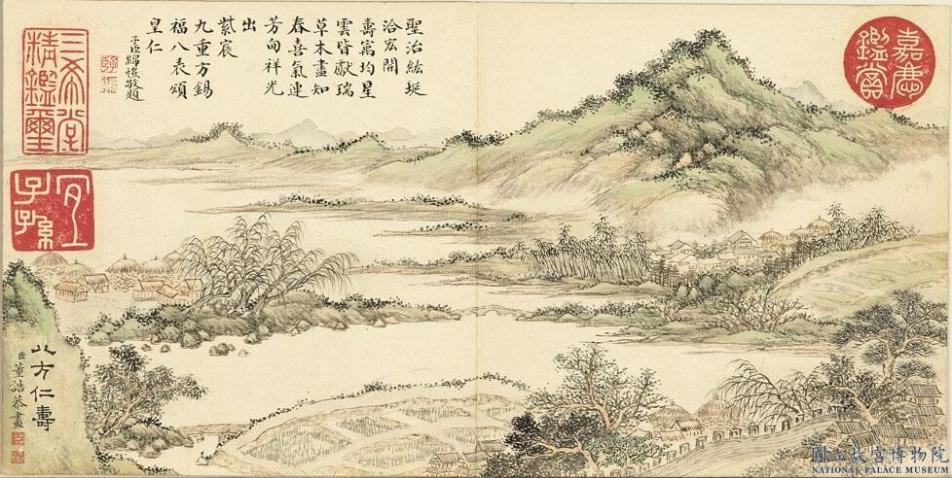 嘉慶
鑑賞
聖治紘埏
洽宏開
壽寓均星
雲皆獻瑞
草木盡知
春喜氣連
芳甸祥光
出
紫宸
九重方錫
福八表頌
皇仁
子臣綿愷敬題
三希堂
精鑑璽
宜
子孫
八方仁壽
臣董誥恭畫
國立故宮博物院
NATIONAL PALACE MUSEUM